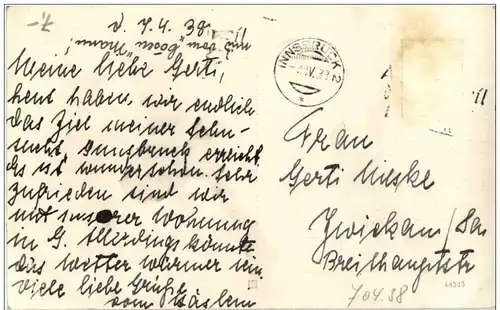 d. 7.4.38
Meine liebe Gerti,
heut haben wir endlich
das Ziel meiner Sehn-
sucht Innsbruck erreicht.
Es ist wunderschön. Sehr
zufrieden sind wir
mit unserer Wohnung
in G. Allerdings könnte
das Wetter wärmer sein
viele liebe Grüße
vom Häslein
und vom "bösen Mann"!
INNSBRUCK 2
Frau
Gerti Mieske
Zwickau/Sa
Breithauptstr
704.38